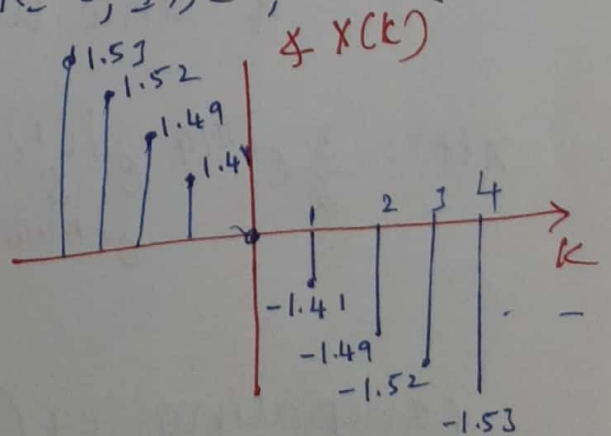 ∡ X(K)
1.53
1.52
1.49
1.41
1 2 3 4
K
-1.41
-1.49
-1.52
-1.53